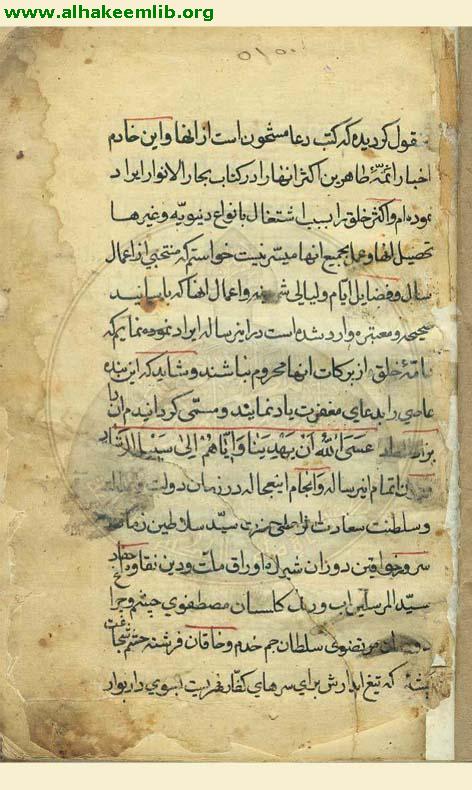 www.alhakeemlib.org
منقول کردیده که کتب دعا مشحون است از انها و این خادم
اخبار ائمّهٔ طاهرین اکثر انها را در کتاب بحار الانوار ایراد
نموده ام و اکثر خلق را بسبب اشتغال بانواع دنیویّه و غیرها
تحصیل انها و عمل بجمیع انها میسّر نیست خواستم که منتخبی از اعمال
سال و فضایل ایام و لیالی شریفه و اعمال انها که باسانید
صحیحه و معتبره وارد شده است در این رساله ایراد نموده نمایم که
عامّهٔ خلق از برکات انها محروم نباشند و شاید که این بنده
عاصی را بدعای مغفرت یاد نمایند و مسمّی کردانیدم آن را
بزاد المعاد عسی اللّٰه ان یهدینا و ایّاهم الی سبیل الرّشاد
اتمام این رساله و انجام این عجاله در زمان دولت
و سلطنت سعادت سیّد سلاطین زمان
سرور خواقین دوران شیرازه اوراق ملّت و دین نقاوه احفاد
سیّد المرسلین اب و رنک کلستان مصطفوی چشم و چراغ
دودمان مرتضوی سلطان جم خدم و خاقان فرشته حشم شجاعت
که تیغ ابدارش برای سرهای کفّار بسوی دار بوار